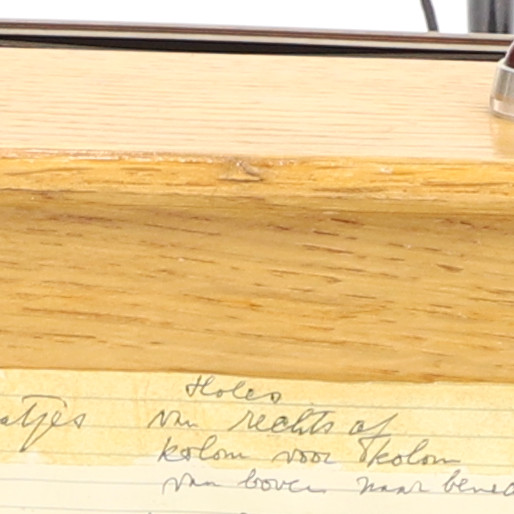 Holes
atjes van rechts af
kolom voor kolom
van boven naar bened